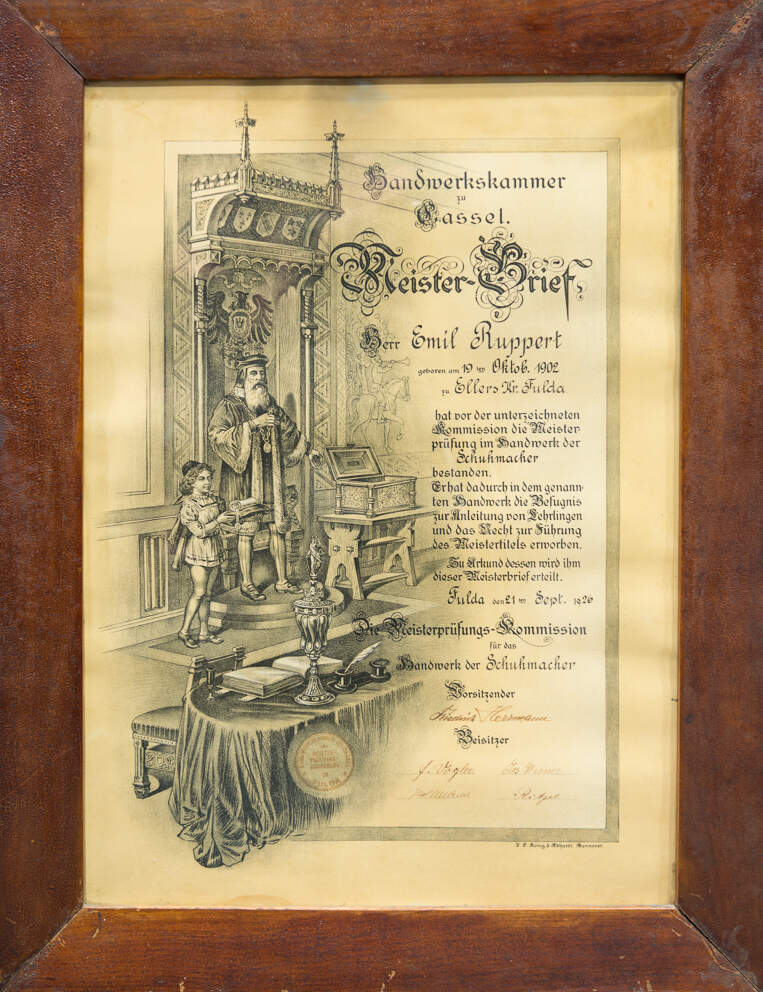 Handwerkskammer
zu
Cassel.
Meister-Brief,
Herr Emil Ruppert
geboren am 19ten Oktob. 1902
zu Ellers Kr. Fulda
hat vor der unterzeichneten
Kommission die Meister
prüfung im Handwerk der
Schuhmacher
bestanden.
Er hat dadurch in dem genann-
ten Handwerk die Befugnis
zur Anleitung von Lehrlingen
und das Recht zur Führung
des Meistertitels erworben.
Zu Urkund dessen wird ihm
dieser Meisterbrief erteilt.
Fulda den 21ten Sept. 1926
Die Meisterprüfungs-Kommission
für das
Handwerk der Schuhmacher
Vorsitzender
Herrmann
Beisitzer